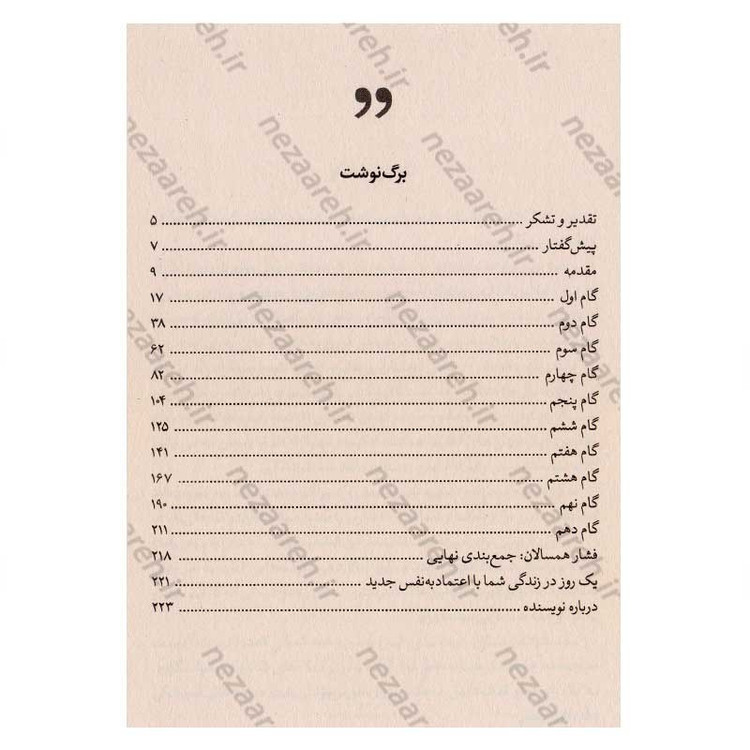 برگ‌نوشت
تقدیر و تشکر ........ ۵
پیش‌گفتار ........ ۷
مقدمه ........ ۹
گام اول ........ ۱۷
گام دوم ........ ۳۸
گام سوم ........ ۶۲
گام چهارم ........ ۸۲
گام پنجم ........ ۱۰۴
گام ششم ........ ۱۲۵
گام هفتم ........ ۱۴۱
گام هشتم ........ ۱۶۷
گام نهم ........ ۱۹۰
گام دهم ........ ۲۱۱
فشار همسالان: جمع‌بندی نهایی ........ ۲۱۸
یک روز در زندگی شما با اعتمادبه‌نفس جدید ........ ۲۲۱
درباره نویسنده ........ ۲۲۳
nezaareh.ir